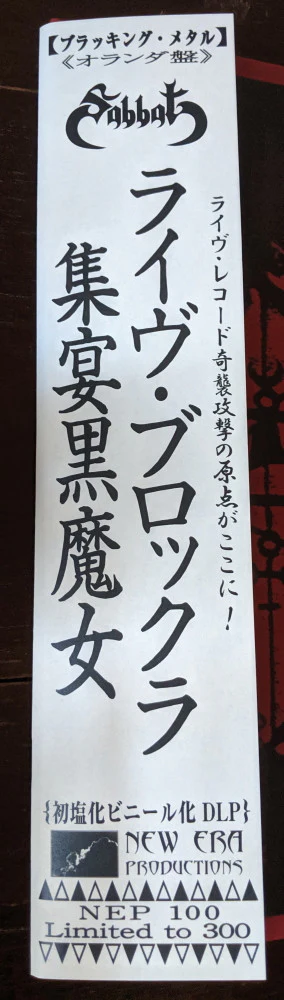 【ブラッキング・メタル】
《オランダ盤》
Sabbat
ライヴ・レコード奇襲攻撃の原点がここに！
ライヴ・ブロックラ
集宴黒魔女
{初塩化ビニール化 DLP}
NEW ERA
PRODUCTIONS
NEP 100
Limited to 300